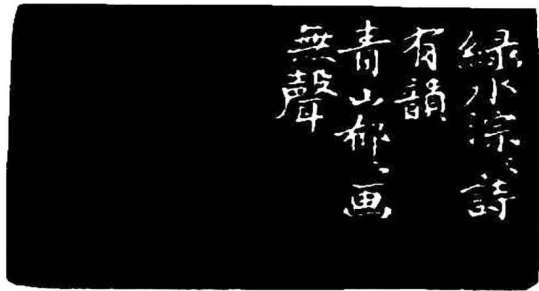 緑水淙〻詩
有韻
青山郁〻画
無聲